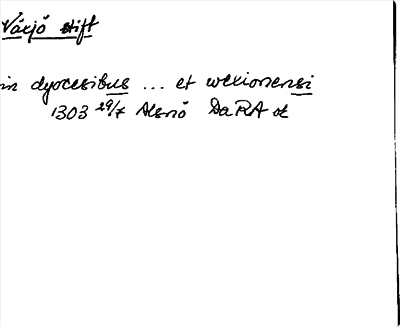 Växjö stift
in dyocesibus ... et wexionensi
1303 29/7 Alsnö DaRA or